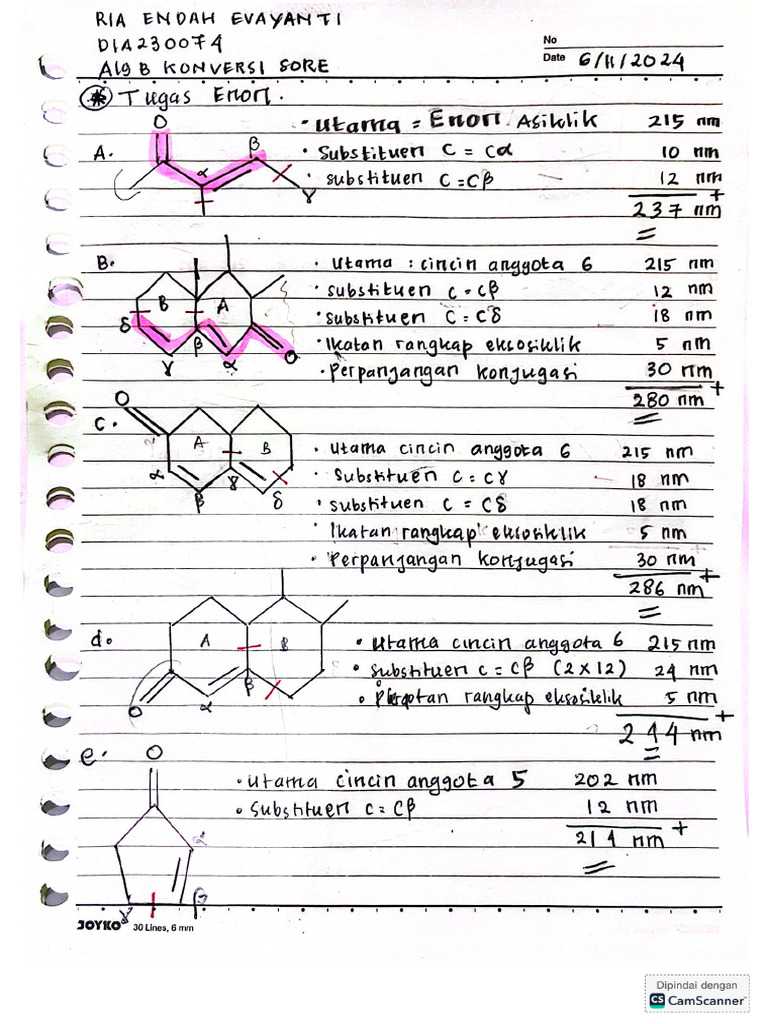 RIA ENDAH EVAYANTI
D1A230074
Alg B KONVERSI SORE
No
Date 6/11/2024
* Tugas Enon.
A.
O
α
β
γ
• Utama = Enon Asiklik 215 nm
• Substituen C = Cα 10 nm
• substituen C = Cβ 12 nm
+
237 nm
B.
B
A
δ
γ
β
α
O
• Utama : cincin anggota 6 215 nm
• substituen C = Cβ 12 nm
• substituen C = Cδ 18 nm
• Ikatan rangkap eksosiklik 5 nm
• Perpanjangan konjugasi 30 nm
+
280 nm
C.
O
A
B
α
β
γ
δ
• Utama cincin anggota 6 215 nm
• Substituen C = Cγ 18 nm
• substituen C = Cδ 18 nm
• Ikatan rangkap eksosiklik 5 nm
• Perpanjangan konjugasi 30 nm
+
286 nm
d.
A
B
O
α
β
• Utama cincin anggota 6 215 nm
• Substituen C = Cβ (2 x 12) 24 nm
• rangkap eksosiklik 5 nm
+
244 nm
e.
O
β
γ
• Utama cincin anggota 5 202 nm
• Substituen C = Cβ 12 nm
+
214 nm
JOYKO 30 Lines, 6 mm
Dipindai dengan
CS CamScanner